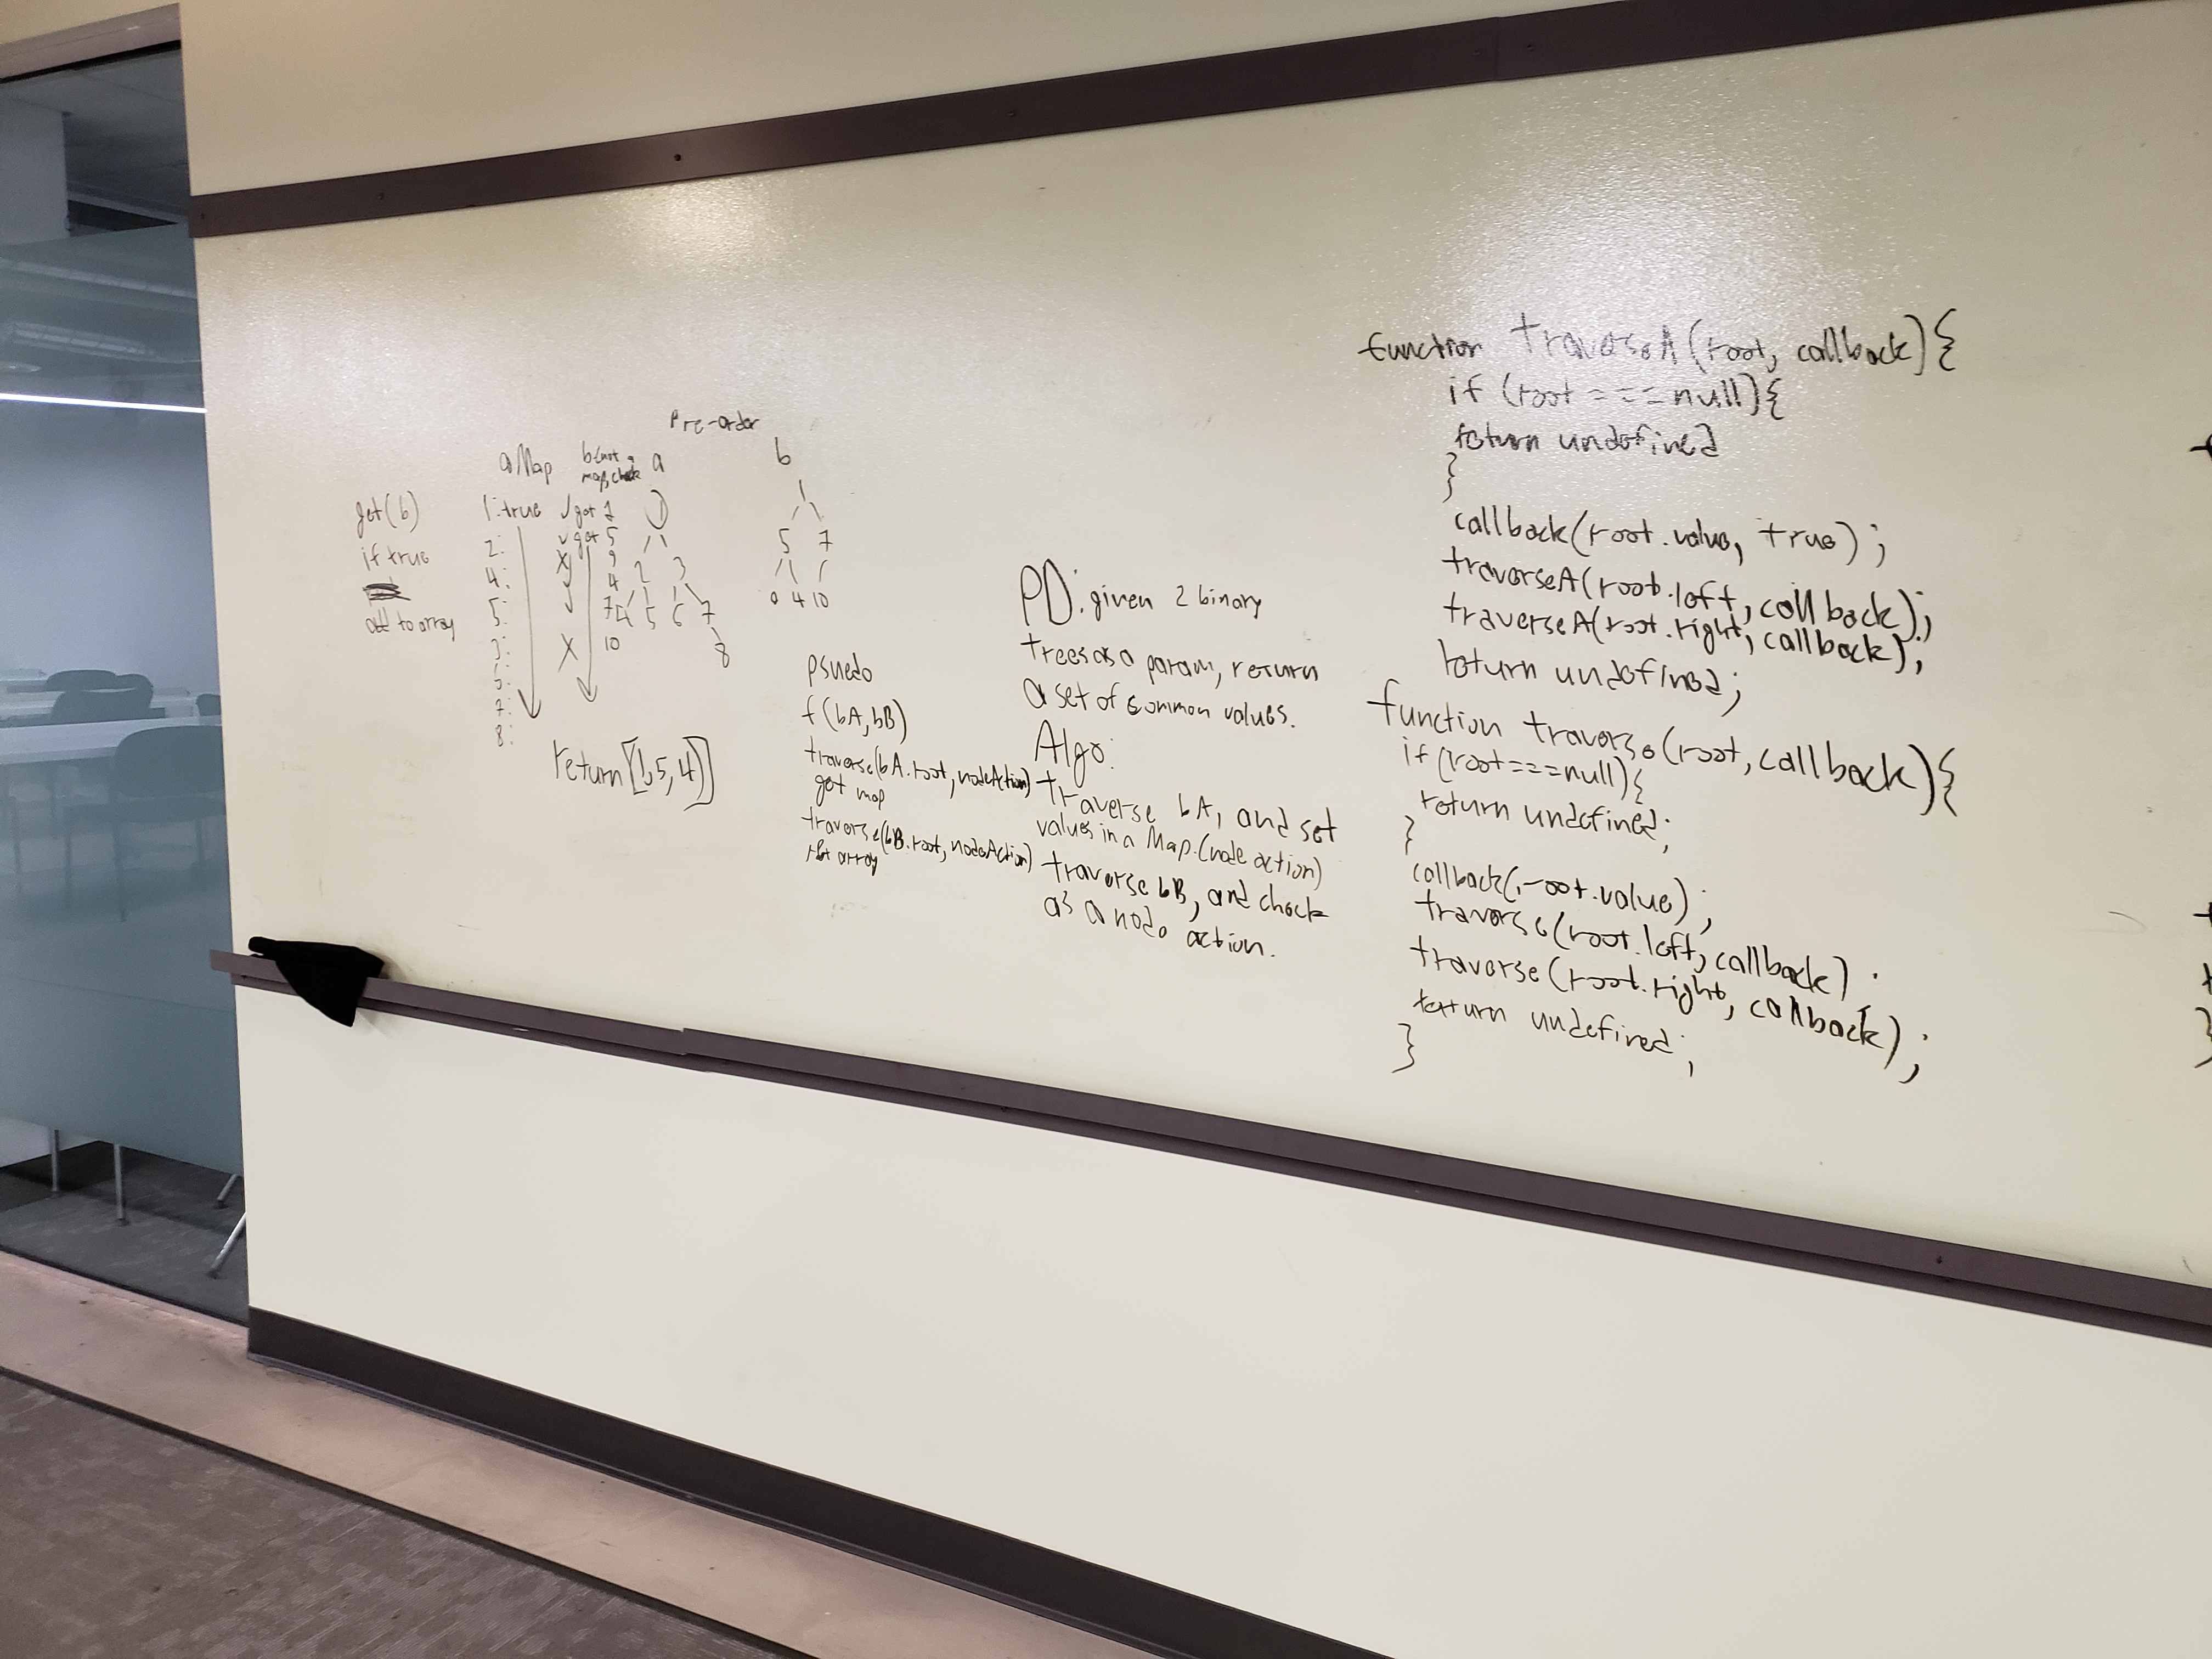 Pre-order
aMap
b(not a
map, check
a
b
get(b)
if true
add to array
1: true
2:
4:
5:
3:
6:
7:
8:
√ got 1
√ got 5
X 9
√ 4
√ 7
X 10
1
2 3
4 5 6 7
8
1
5 7
9 4 10
return [1,5,4)]
psuedo
f(bA,bB)
traverse(bA.root, nodeAction)
get map
traverse(bB.root, nodeAction)
array
PD: given 2 binary
trees as a param, return
a set of common values.
Algo:
traverse bA, and set
values in a Map. (node action)
traverse bB, and check
as a node action.
function traverseA(root, callback){
if (root === null){
return undefined
}
callback(root.value, true);
traverseA(root.left, callback);
traverseA(root.right, callback);
return undefined;
function traverse(root, callback){
if (root===null){
return undefined;
}
callback(root.value);
traverse(root.left, callback);
traverse(root.right, callback);
return undefined;
}